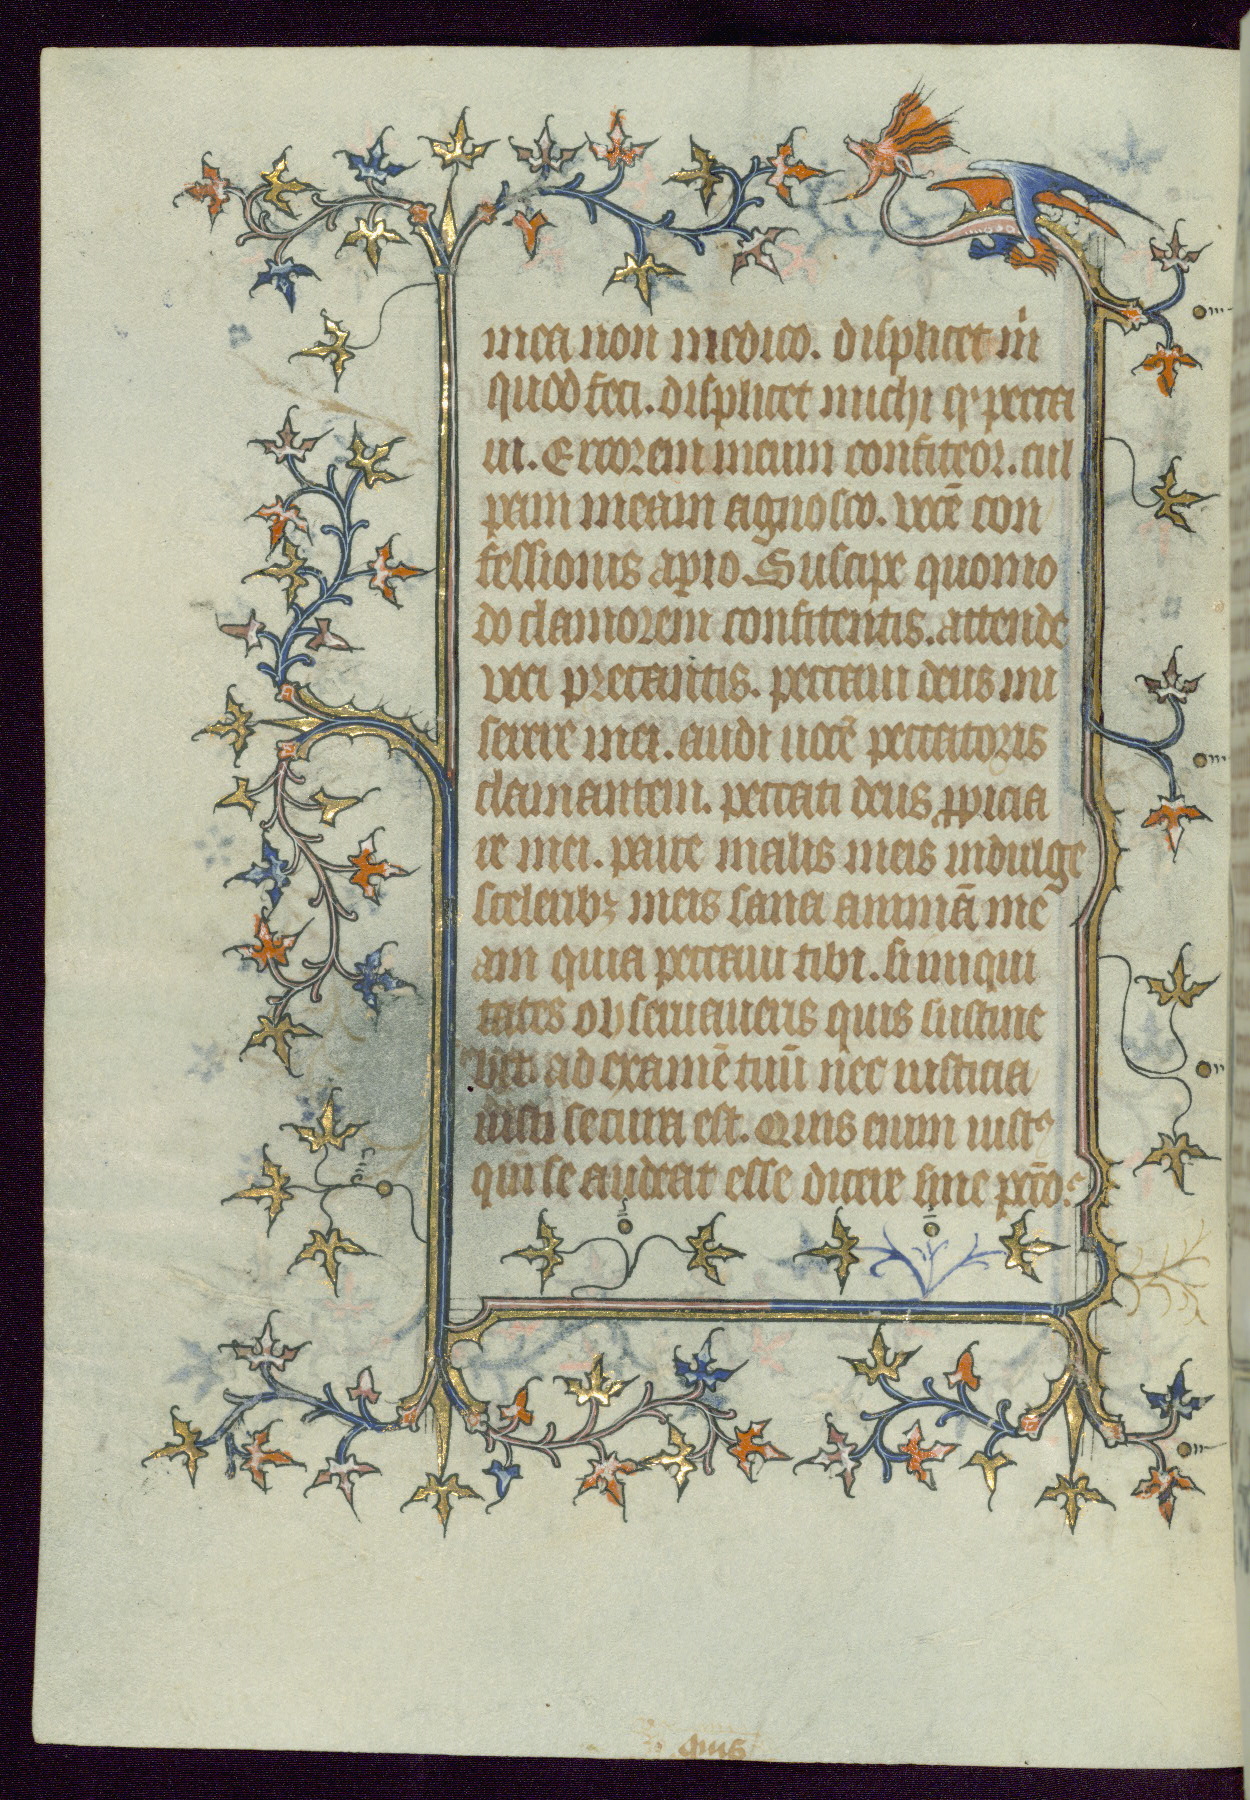 mea non medico. displicet m̅
quod feci. displicet michi q̇ pecca
ui. Errorem meum confiteor. cul
pam meam agnosco. vocē con
fessionis aꝑio. Suscipe quomo
do clamorem confitentis. attende
voci precantis. peccaui deus mi
serere mei. audi uocē peccatoris
clamantem. peccati deus ꝓpicia
re mei. parce malis meis indulge
sceleribꝫ meis sana animā me
am quia peccaui tibi. si iniqui
tates obseruaueris quis sustine
bit. ad examē tuū nec iusticia
iusti secura est. Quis enim iustꝰ
qui se audeat esse dicere sine pctō.
quis